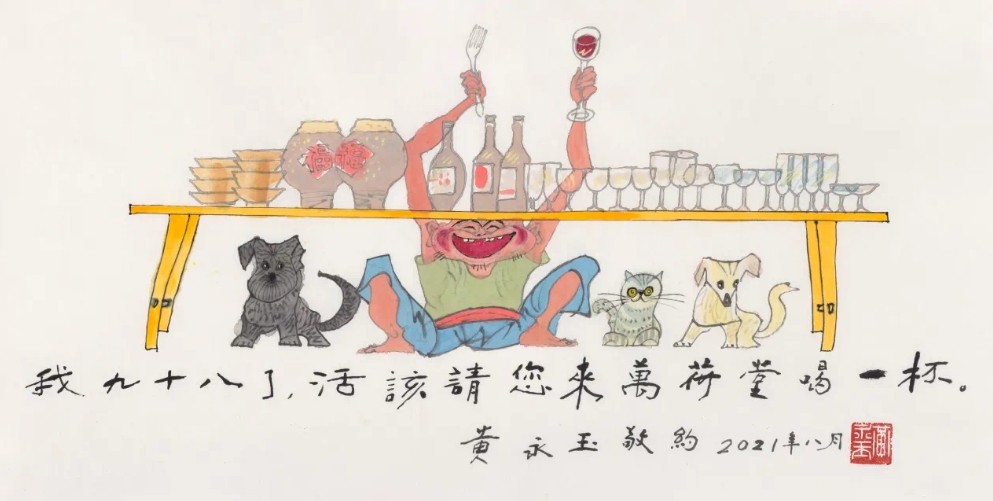 福
福
我九十八了,活該請您來萬荷堂喝一杯。
黃永玉敬約 2021年八月